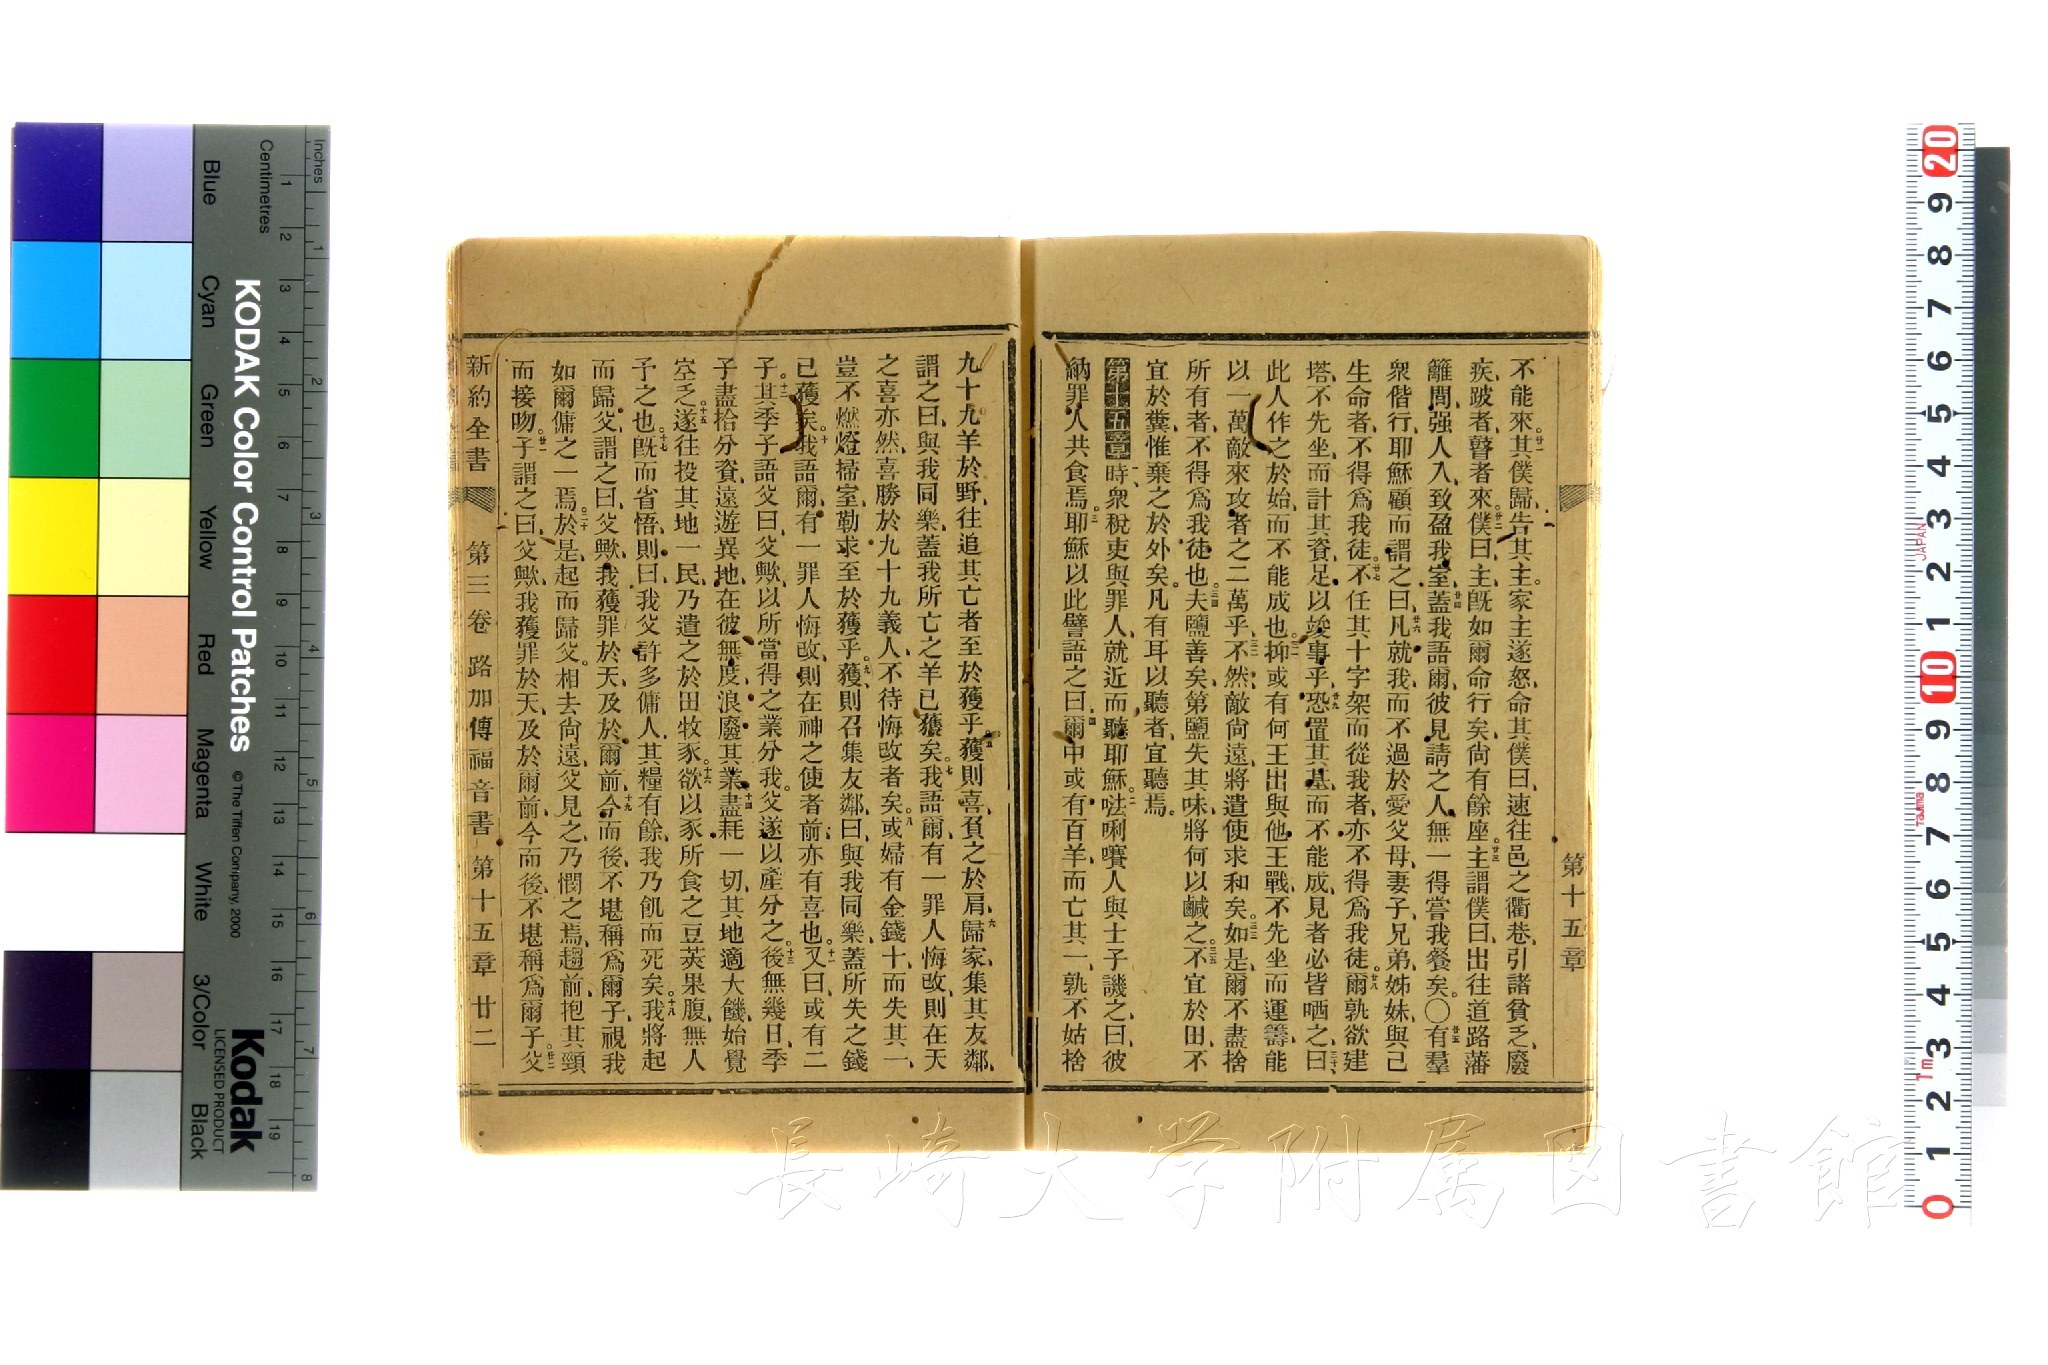 第十五章
不能來廿一其僕歸告其主。家主遂怒命其僕曰、速往邑之衢巷、引諸貧乏、廢
疾、跛者、瞽者來。廿二僕曰、主、旣如爾命行矣、尙有餘座、廿三主謂僕曰、出往道路藩
籬間、强人入、致盈我室、廿四蓋我語爾、彼見請之人、無一得嘗我餐矣。○廿五有羣
衆偕行、耶穌顧而謂之曰、廿六凡就我而不過於愛父母、妻子、兄弟、姊妹、與己
生命者、不得爲我徒、廿七不任其十字架而從我者、亦不得爲我徒、廿八爾孰欲建
塔、不先坐而計其資足以竣事乎、廿九恐置其基、而不能成、見者必皆哂之曰、三十
此人作之於始、而不能成也、三一抑或有何王出與他王戰、不先坐而運籌、能
以一萬敵來攻者之二萬乎、三二不然、敵尙遠、將遣使求和矣、三三如是、爾不盡捨
所有者、不得爲我徒也。三四夫鹽善矣、第鹽失其味、將何以鹹之、三五不宜於田、不
宜於糞、惟棄之於外矣。凡有耳以聽者、宜聽焉。
第十五章 一時、衆稅吏與罪人、就近而聽耶穌、二𠵽唎㘔人與士子譏之曰、彼
納罪人共食焉、三耶穌以此譬語之曰、四爾中或有百羊、而亡其一、孰不姑捨
九十九羊於野、往追其亡者、至於獲乎、五獲則喜、負之於肩、六歸家集其友鄰、
謂之曰、與我同樂、蓋我所亡之羊已獲矣、七我語爾、有一罪人悔改、則在天
之喜亦然、喜勝於九十九義人、不待悔改者矣。八或婦有金錢十、而失其一、
豈不燃燈掃室、勤求至於獲乎、九獲則召集友鄰曰、與我同樂、蓋所失之錢
已獲矣、十我語爾、有一罪人悔改、則在神之使者前、亦有喜也。十一又曰、或有二
子、十二其季子語父曰、父歟、以所當得之業分我、父遂以產分之、十三後無幾日、季
子盡拾分資、遠遊異地、在彼無度、浪廢其業、十四盡耗一切、其地適大饑、始覺
空乏、十五遂往投其地一民、乃遣之於田牧豕、十六欲以豕所食之豆莢果腹、無人
予之也、十七旣而省悟、則曰、我父許多傭人、其糧有餘、我乃飢而死矣、十八我將起
而歸父、謂之曰、父歟、我獲罪於天、及於爾前、十九今而後、不堪稱爲爾子、視我
如爾傭之一焉、二十於是起而歸父。相去尙遠、父見之、乃憫之焉、趨前抱其頸
而接吻、廿一子謂之曰、父歟、我獲罪於天、及於爾前、今而後、不堪稱爲爾子。廿二父
新約全書 第三卷 路加傳福音書 第十五章 廿二
長崎大学附属図書館
KODAK Color Control Patches
© The Tiffen Company, 2000
Kodak
LICENSED PRODUCT
Inches
Centimetres
Blue Cyan Green Yellow Red Magenta White 3/Color Black
1 2 3 4 5 6 7 8 9 10 11 12 13 14 15 16 17 18 19
1 2 3 4 5 6 7 8
20 9 8 7 6 5 4 3 2 1 10 9 8 7 6 5 4 3 2 1 0
JAPAN
Tajima
1m